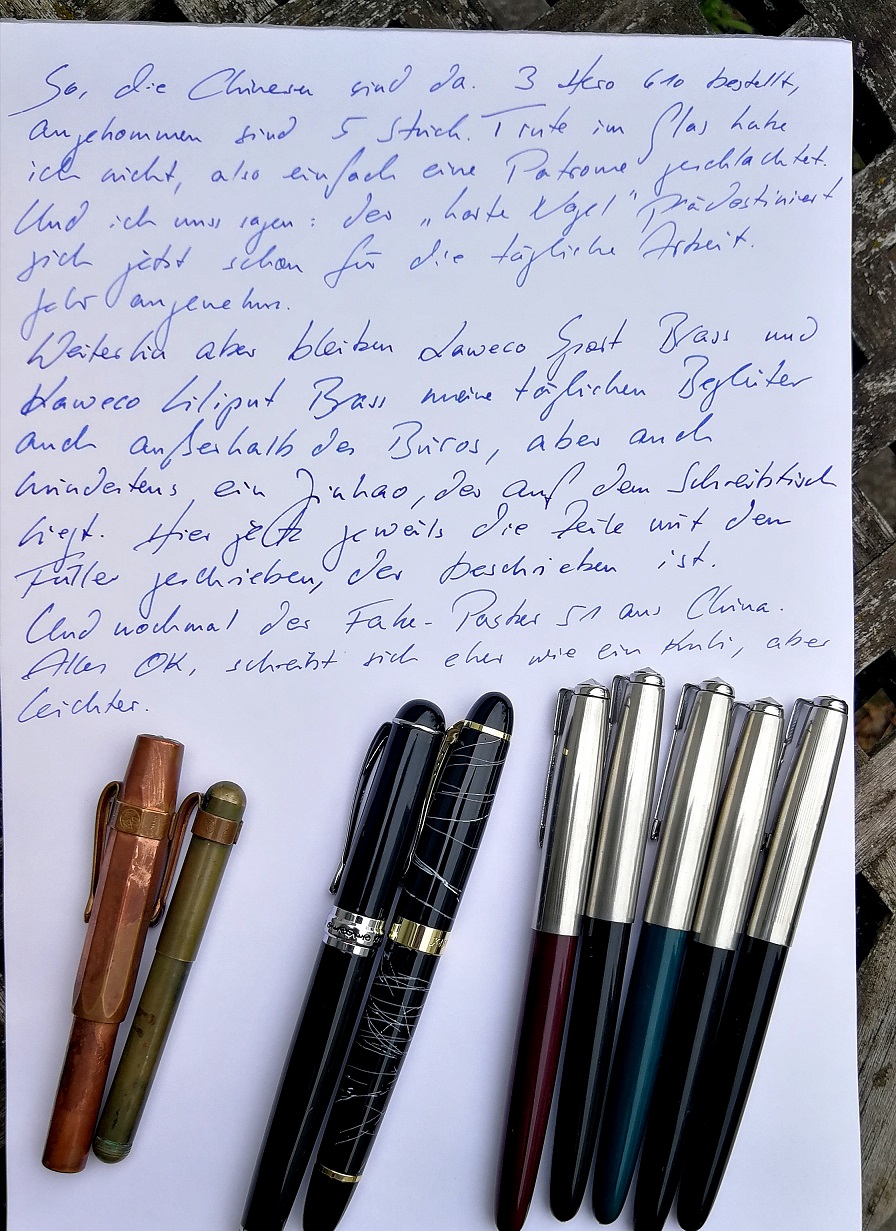 So, die Chinesen sind da. 3 Hero 610 bestellt,
angekommen sind 5 Stück. Tinte im Glas habe
ich nicht, also einfach eine Patrone geschlachtet.
Und ich muss sagen: der „harte Nagel" prädestiniert
sich jetzt schon für die tägliche Arbeit.
Sehr angenehm.
Weiterhin aber bleiben Kaweco Sport Brass und
Kaweco Liliput Brass meine täglichen Begleiter
auch außerhalb des Büros, aber auch
mindestens ein Jinhao, der auf dem Schreibtisch
liegt. Hier jetzt jeweils die Zeile mit dem
Füller geschrieben, der beschrieben ist.
Und nochmal der Fake-Parker 51 aus China.
Alles OK, schreibt sich eher wie ein Kuli, aber
leichter.